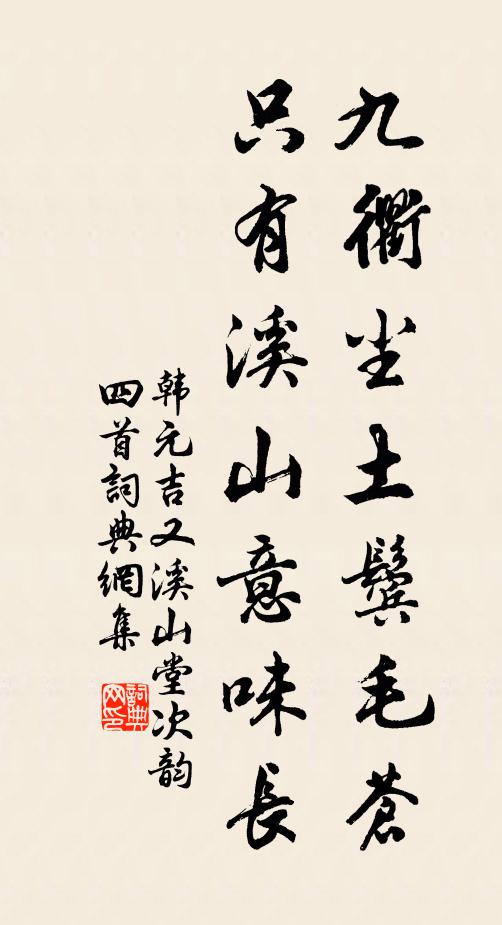 九衢尘土鬓毛蒼
只有溪山意味長
韩元吉又溪山堂次韵
四首詞典網集
詞典
网印